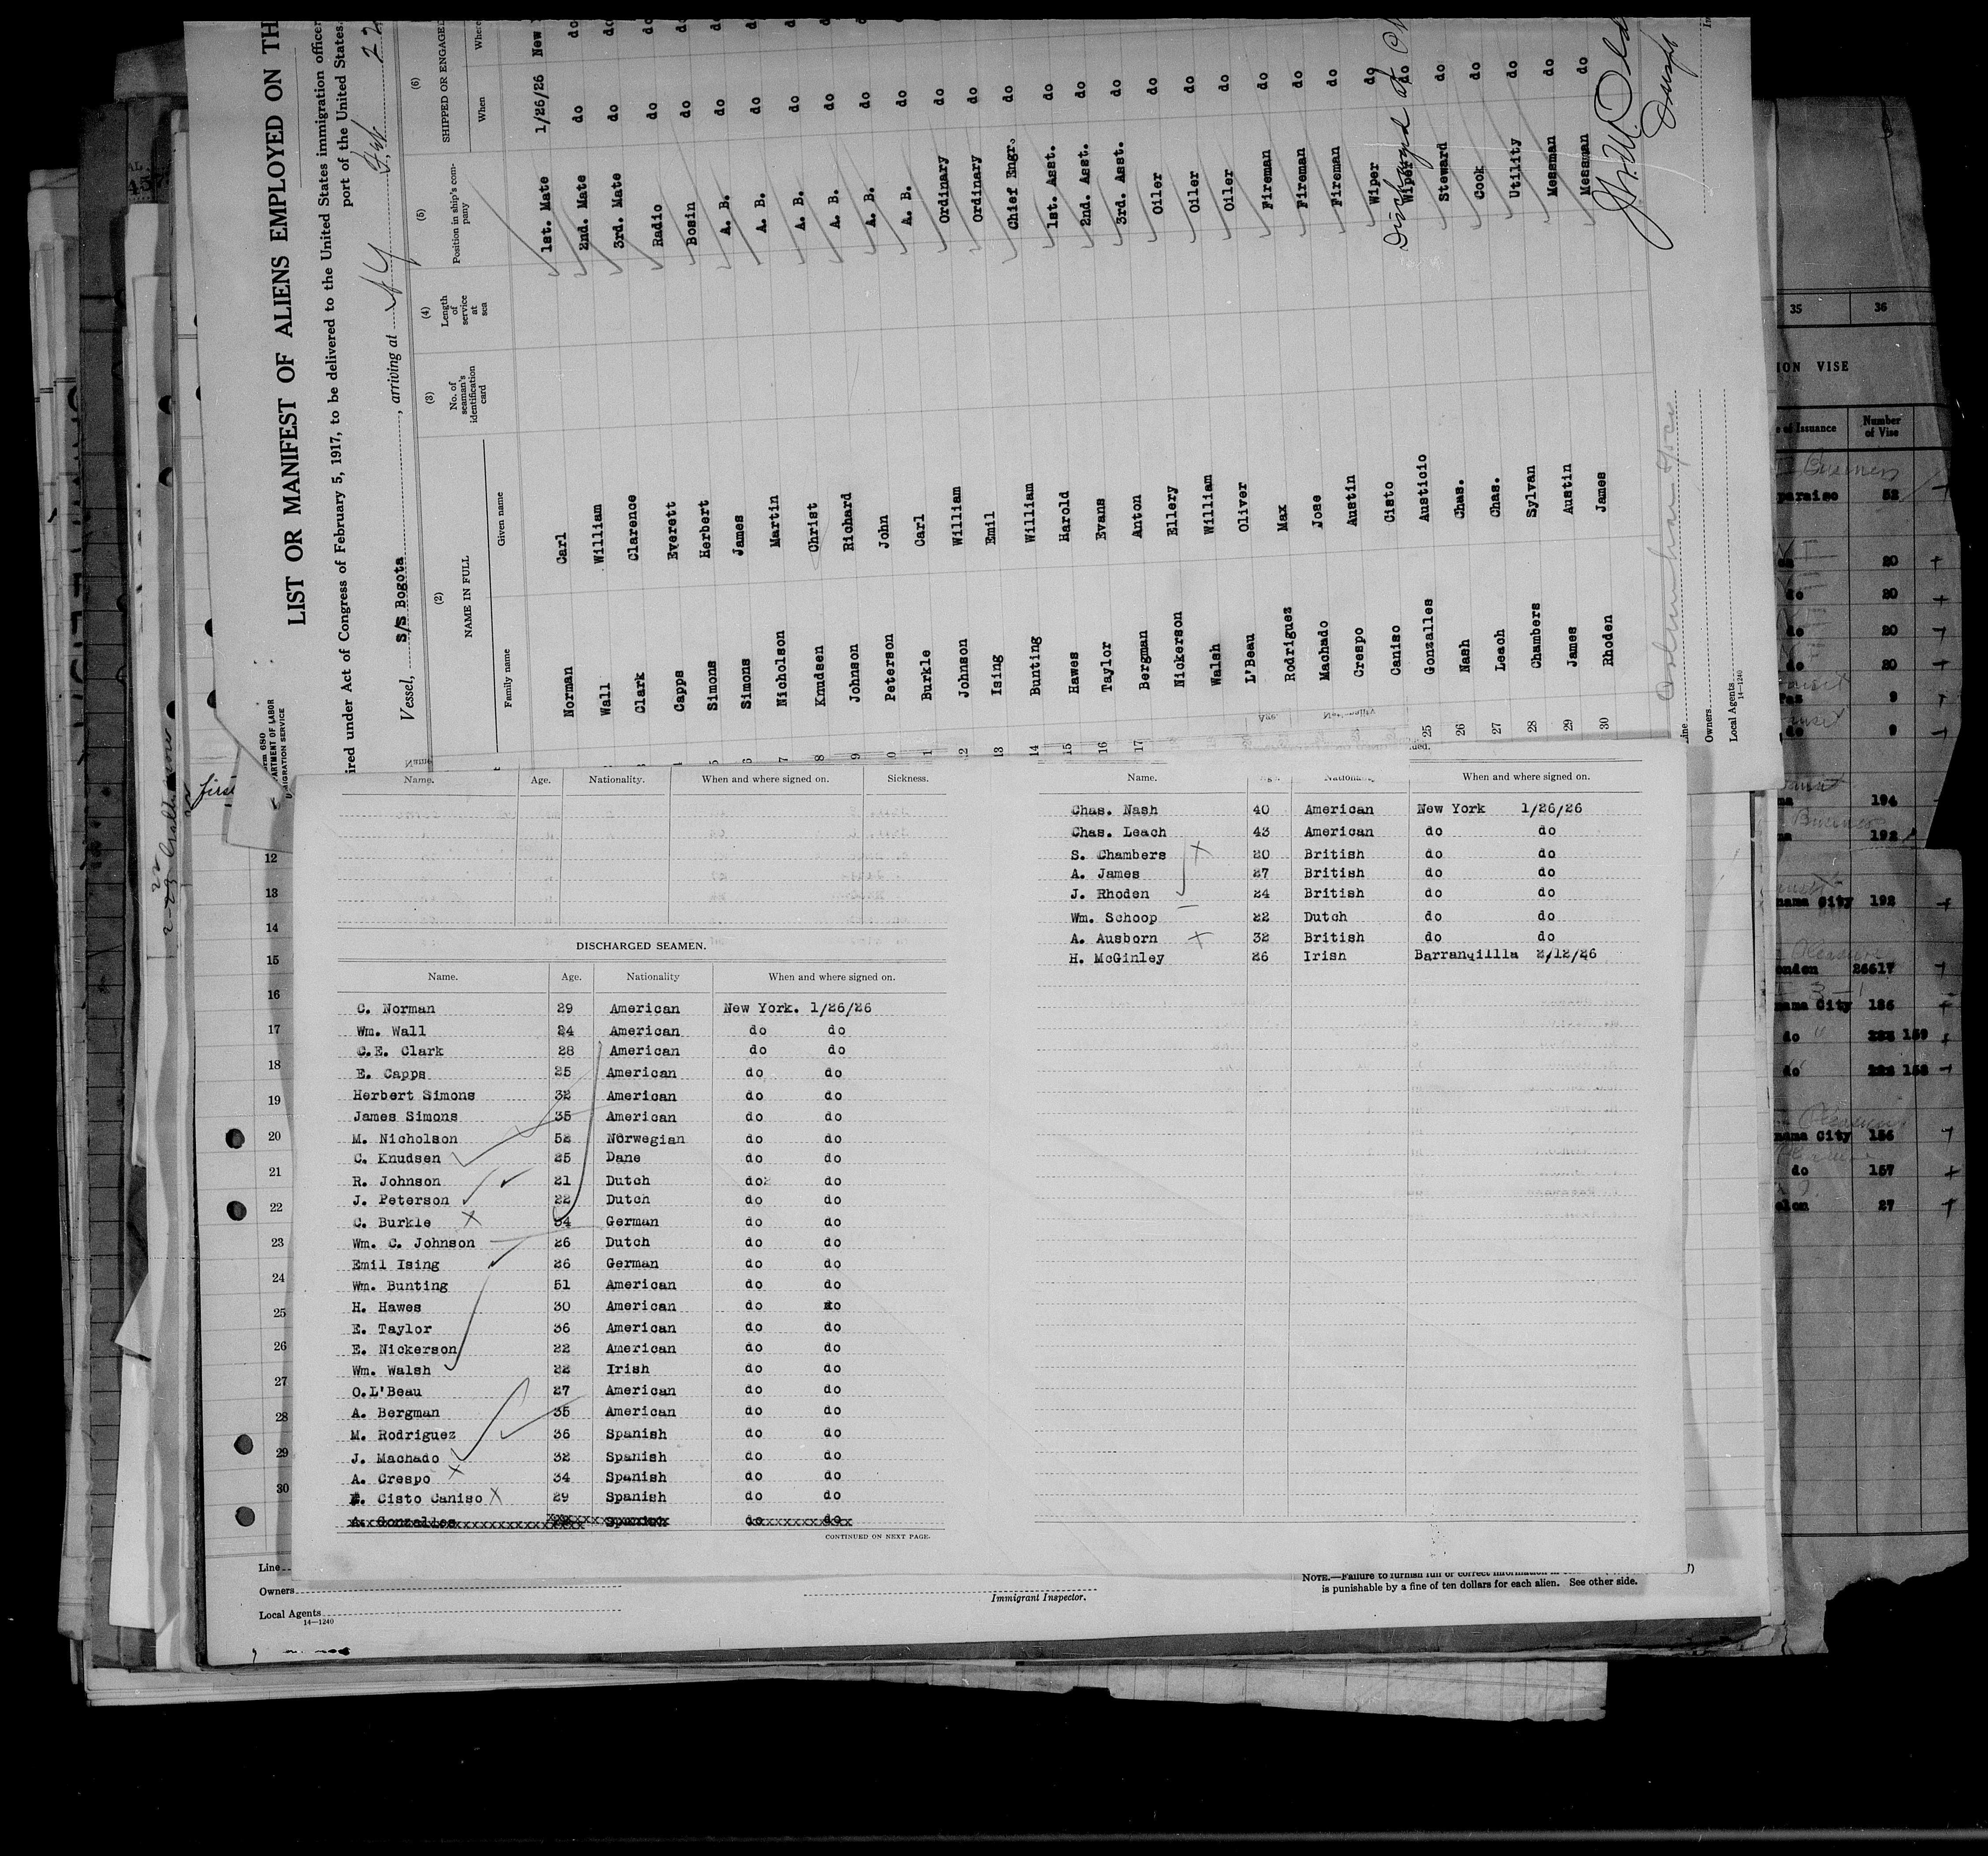 LIST OR MANIFEST OF ALIENS EMPLOYED ON TH
ired under Act of Congress of February 5, 1917, to be delivered to the United States immigration officer
port of the United States
Vessel, S/S Bogota, arriving at N Y
(2) (3) (4) (5) (6)
NAME IN FULL No. of seaman's identification card Length of service at sea Position in ship's company SHIPPED OR ENGAGED
Family name Given name When Where
Norman Carl 1st. Mate 1/26/26 New
Wall William 2nd. Mate do do
Clark Clarence 3rd. Mate do do
Capps Everett Radio do do
Simons Herbert Bosin do do
Simons James A. B. do do
7 Nicholson Martin A. B. do do
8 Knudsen Christ A. B. do do
9 Johnson Richard A. B. do do
0 Peterson John A. B. do do
1 Burkle Carl A. B. do
12 Johnson William Ordinary do
13 Ising Emil Ordinary do
14 Bunting William Chief Engr. do
15 Hawes Harold 1st. Asst. do
16 Taylor Evans 2nd. Asst. do
17 Bergman Anton 3rd. Asst. do
Nickerson Ellery Oiler do
Walsh William Oiler do
L'Beau Oliver Oiler do
Rodriguez Max Fireman do
Machado Jose Fireman do
Crespo Austin Fireman do
Caniso Cisto Wiper do
25 Gonzalles Austicio Wiper do
Discharged at
26 Nash Chas. Steward do
27 Leach Chas. Cook do
28 Chambers Sylvan Utility do
29 James Austin Messman do
30 Rhoden James Messman do
Line
Owners
Local Agents
14—1240
Name. Age. Nationality. When and where signed on. Sickness.
DISCHARGED SEAMEN.
Name. Age. Nationality When and where signed on.
C. Norman 29 American New York. 1/26/26
Wm. Wall 24 American do do
C.E. Clark 28 American do do
E. Capps 25 American do do
Herbert Simons 32 American do do
James Simons 35 American do do
M. Nicholson 52 Norwegian do do
C. Knudsen 25 Dane do do
R. Johnson 21 Dutch do: do
J. Peterson 22 Dutch do do
C. Burkle 34 German do do
Wm. C. Johnson 26 Dutch do do
Emil Ising 26 German do do
Wm. Bunting 51 American do do
H. Hawes 30 American do do
E. Taylor 36 American do do
E. Nickerson 22 American do do
Wm. Walsh 22 Irish do do
O.L'Beau 27 American do do
A. Bergman 35 American do do
M. Rodriguez 36 Spanish do do
J. Machado 32 Spanish do do
A. Crespo 34 Spanish do do
Cisto Caniso 29 Spanish do do
A. Gonzalles Spanish do do
CONTINUED ON NEXT PAGE.
Name. When and where signed on.
Chas. Nash 40 American New York 1/26/26
Chas. Leach 43 American do do
S. Chambers 20 British do do
A. James 27 British do do
J. Rhoden 24 British do do
Wm. Schoop 22 Dutch do do
A. Ausborn 32 British do do
H. McGinley 26 Irish Barranqillla 2/12/26
12
13
14
15
16
17
18
19
20
21
22
23
24
25
26
27
28
29
30
Line
Owners
Local Agents
14—1240
Immigrant Inspector.
NOTE.—Failure to furnish full or correct information
is punishable by a fine of ten dollars for each alien. See other side.
35 36
ION VISE
of Issuance Number of Vise
Business
paraiso 52
20
do 20
do 20
do 20
9
do 9
194
192
nama City 192
onden 26617
nama City 186
do 159
do 158
nama City 156
do 157
27